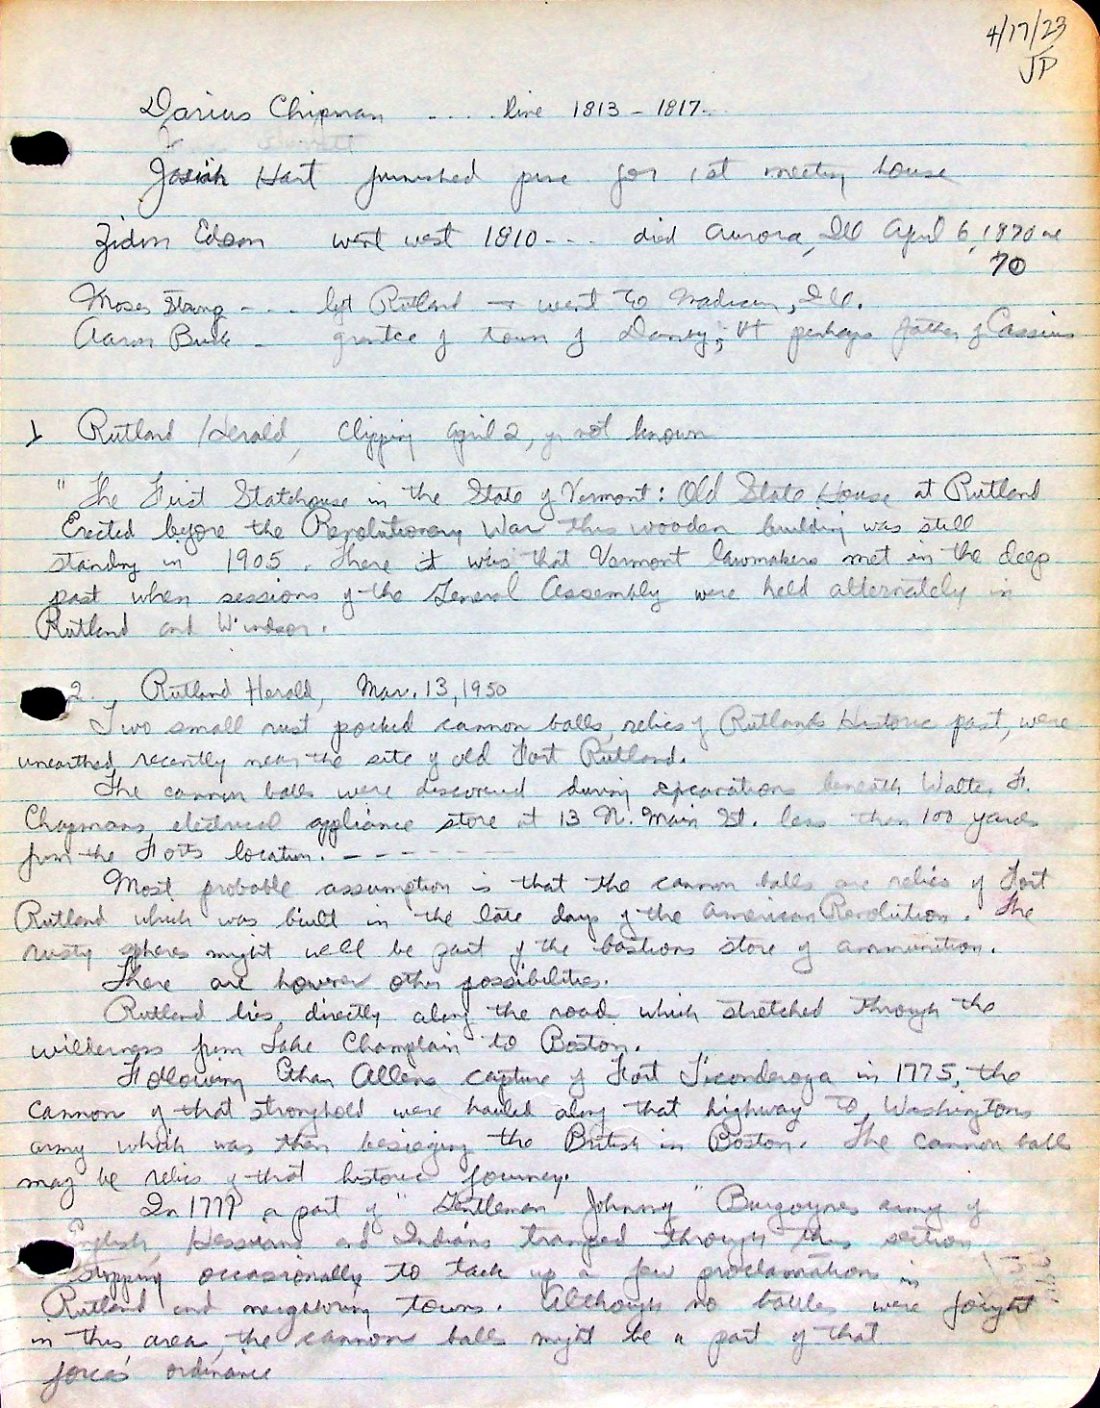 4/17/23
JP
Darius Chipman - . . . . 1813 - 1817.
Josiah Hart furnished pine for 1st meeting house
Zidon Edson went west 1810 - - . died Aurora, Ill April 6, 1870 ae
70
Moses Strong - - . left Rutland → went to Madison, Ill.
Aaron - grantee of town of ; Vt perhaps father of Cassius
1 Rutland Herald, Clipping April 2, yr not known
"The First Statehouse in the State of Vermont: Old State House at Rutland
Erected before the Revolutionary War this wooden building was still
standing in 1905. There it was that Vermont lawmakers met in the deep
past when sessions of the General Assembly were held alternately in
Rutland and Windsor.
2. Rutland Herald, Mar. 13, 1950
Two small rust pocked cannon balls, relics of Rutlands Historic past, were
unearthed recently near the site of old Fort Rutland.
The cannon balls were discovered during excavations beneath Walter F.
Chapmans, electrical appliance store at 13 N. Main St. less than 100 yards
from the Forts location. - - - - - - -
Most probable assumption is that the cannon balls are relics of Fort
Rutland which was built in the late days of the American Revolution. The
rusty spheres might well be part of the bastions store of ammunition.
There are however other possibilities.
Rutland lies, directly along the road which stretched through the
wilderness from Lake Champlain to Boston.
Following Ethan Allens capture of Fort Ticonderoga in 1775, the
cannon of that stronghold were hauled along that highway to Washingtons
army which was then besieging the British in Boston. The cannon balls
may be relics of that historic journey.
In 1777 a part of "Gentleman Johnny" Burgoynes army of
English, Hessians and Indians tramped through this section
stopping occasionally to tack up a few proclamations in
Rutland and neighboring towns. Although no battles were fought
in this area, the cannon balls might be a part of that
forces' ordinance